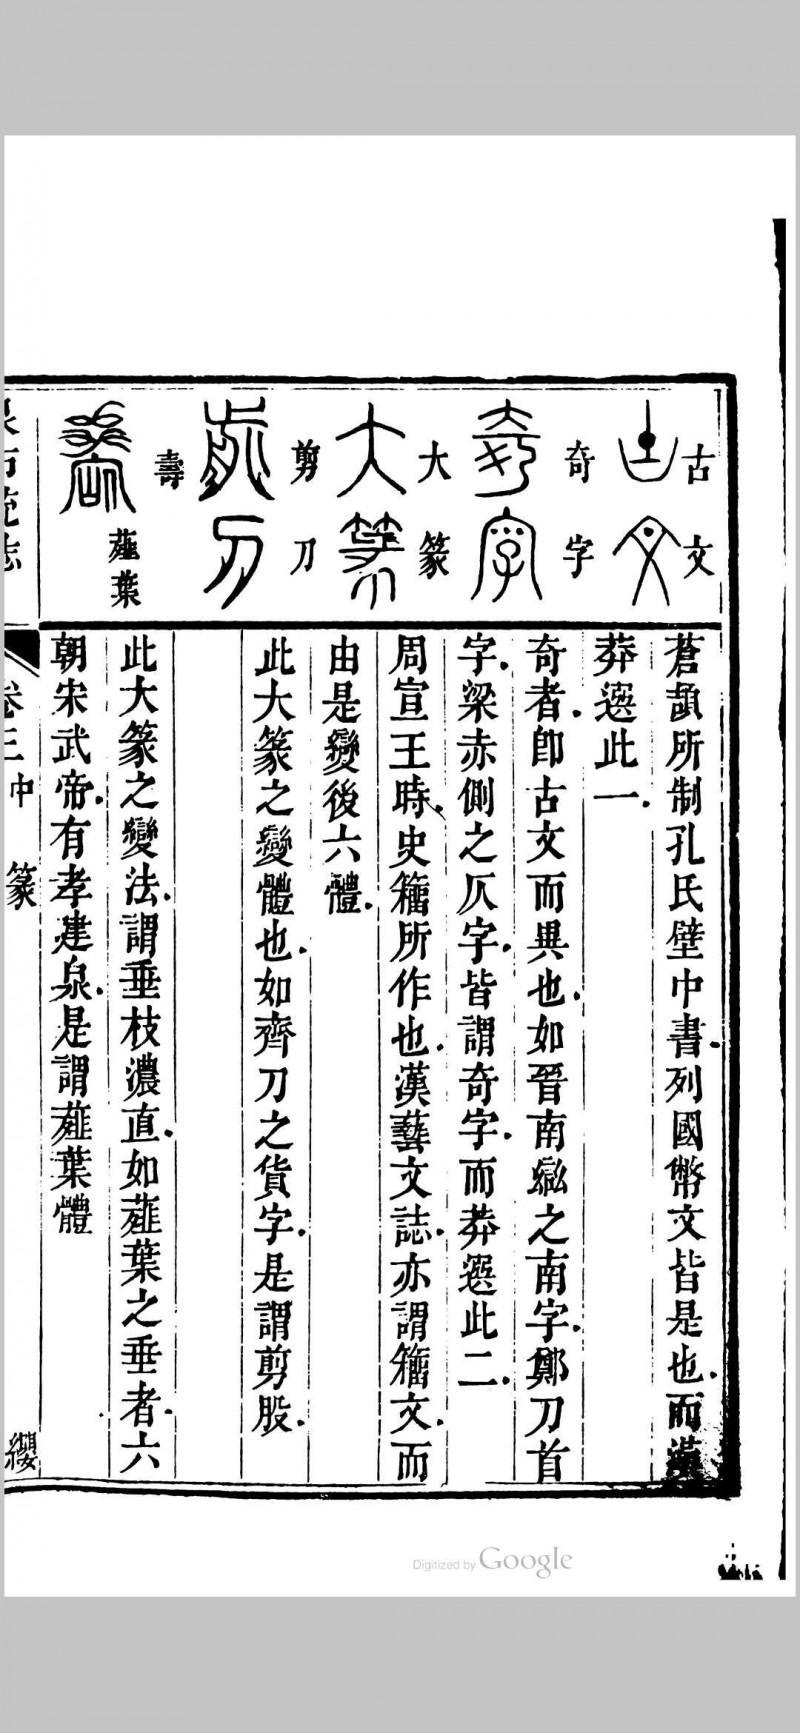 古文
奇字
大篆
剪刀
壽
薤葉
蒼頡所制孔氏壁中書列國幣文皆是也而漢
莽選此一
奇者卽古文而異也如晉南㣉之南字鄭刀首
字梁赤側之仄字皆謂奇字而莽選此二
周宣王時史籀所作也漢藝文誌亦謂籀文而
由是變後六體
此大篆之變體也如齊刀之貨字是謂剪股
此大篆之變法謂垂枝濃直如薤葉之垂者六
朝宋武帝有孝建泉是謂薤葉體
泉布統誌
卷三中
篆
纓
Digitized by Google